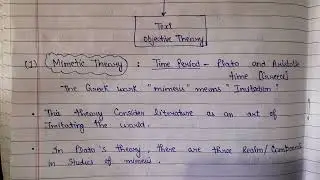 Text
objective Theory
(1) Mimetic Theory : Time Period - Plato and Aristotle
time [Greece]
The Greek work "mimesis" means "Imitation"
• This theory Consider literature as an art of
Imitating the world.
• In Plato's theory, there are three Realm/Components
in studies of mimesis.